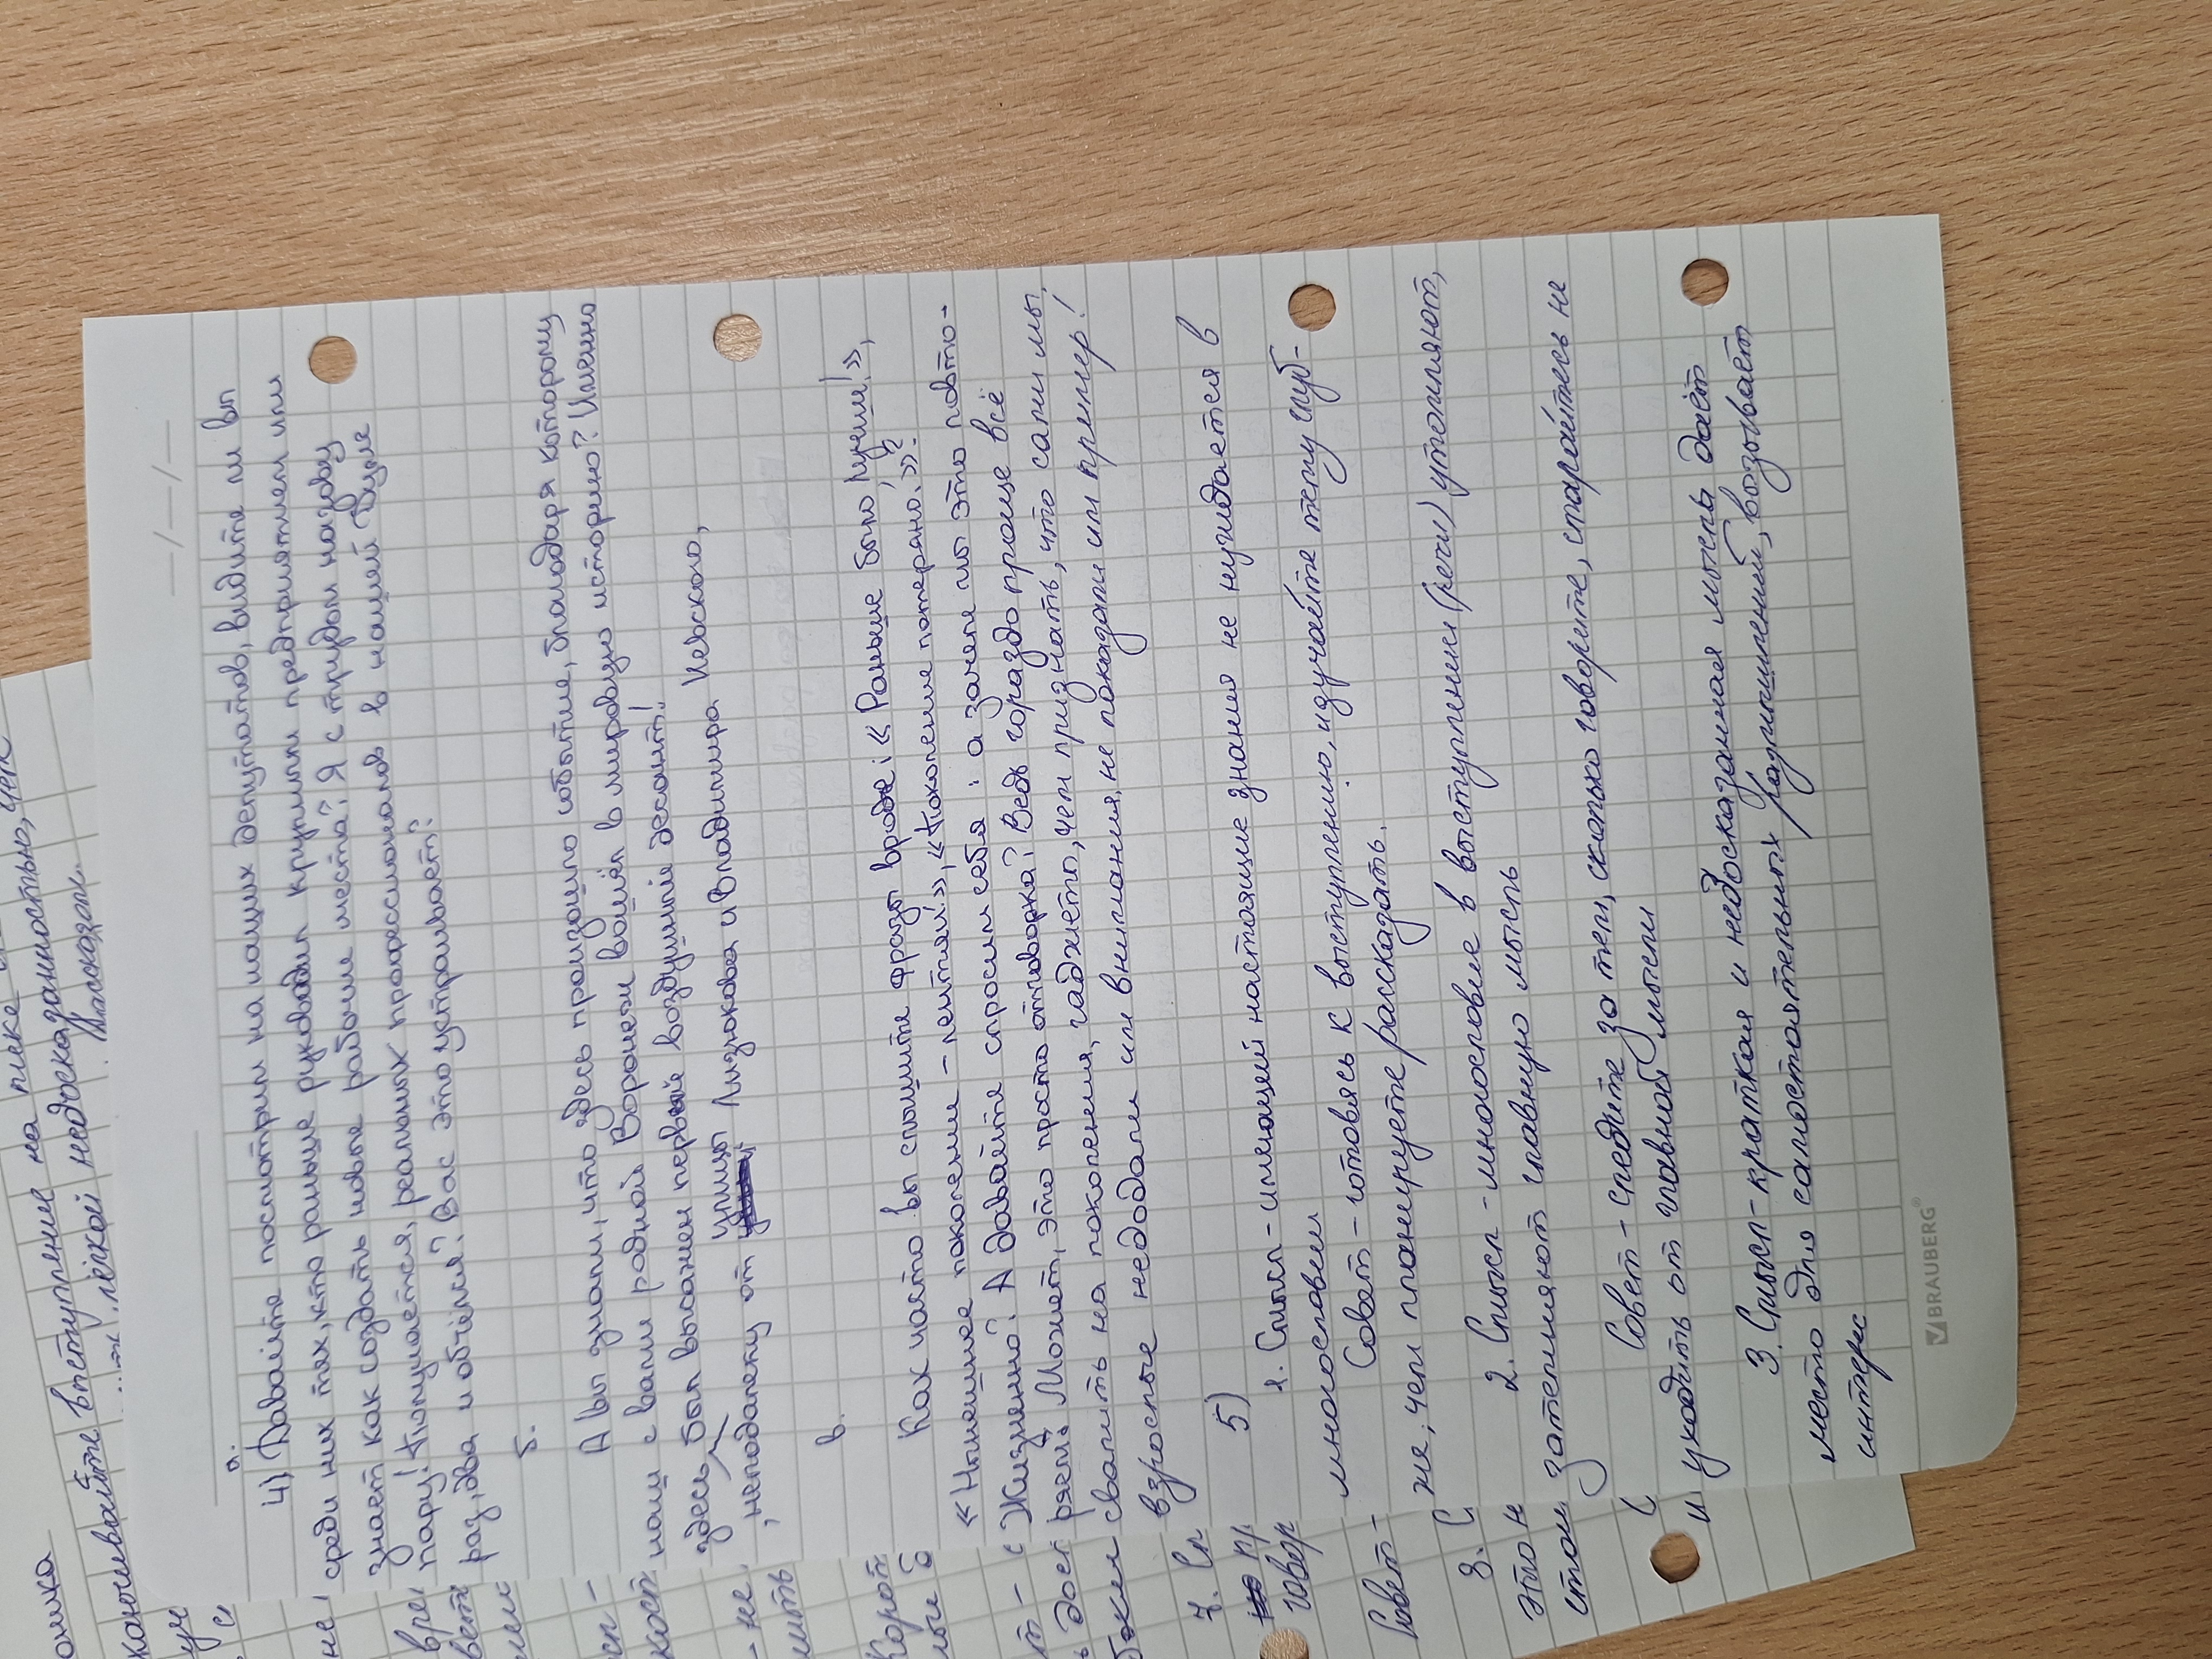 а.
4) Давайте посмотрим на наших депутатов, видите ли вы
среди них тех, кто раньше руководил крупным предприятием или
знает как создать новые рабочие места? Я с трудом назову
пару! Получается, реальных профессионалов в нашей Думе
раз, два и обчёлся? Вас это устраивает?
б.
А вы знали, что здесь произошло событие, благодаря которому
наш с вами родной Воронеж вошёл в мировую историю? Именно
здесь был высажен первый воздушный десант!
, неподалёку от улицы Лизюкова и Владимира Невского,
в.
Как часто вы слышите фразы вроде: «Раньше было лучше!»,
«Нынешнее поколение - лентяи», «Поколение потеряно.»?
Жизненно? А давайте спросим себя: а зачем мы это повто-
ряем? Может, это просто отговорка? Ведь гораздо проще всё
свалить на поколения, гаджеты, чем признать, что сами мы,
взрослые недодали им внимания, не показали им пример!
5)
1. Смысл - имеющий настоящие знания не нуждается в
многословии
Совет - готовясь к выступлению, изучайте тему глуб-
же, чем планируете рассказать.
2. Смысл - многословие в выступлении (речи) утопляют,
затемняют главную мысль
Совет - следите за тем, сколько говорите, старайтесь не
уходить от главной мысли
3. Смысл - краткая и недосказанная мысль даёт
место для самостоятельных размышлений, возывает
интерес
BRAUBERG®
выступление на пике
Заканчивайте
лёгкой недосказанностью.
7. См
говор
Совет -
8. С